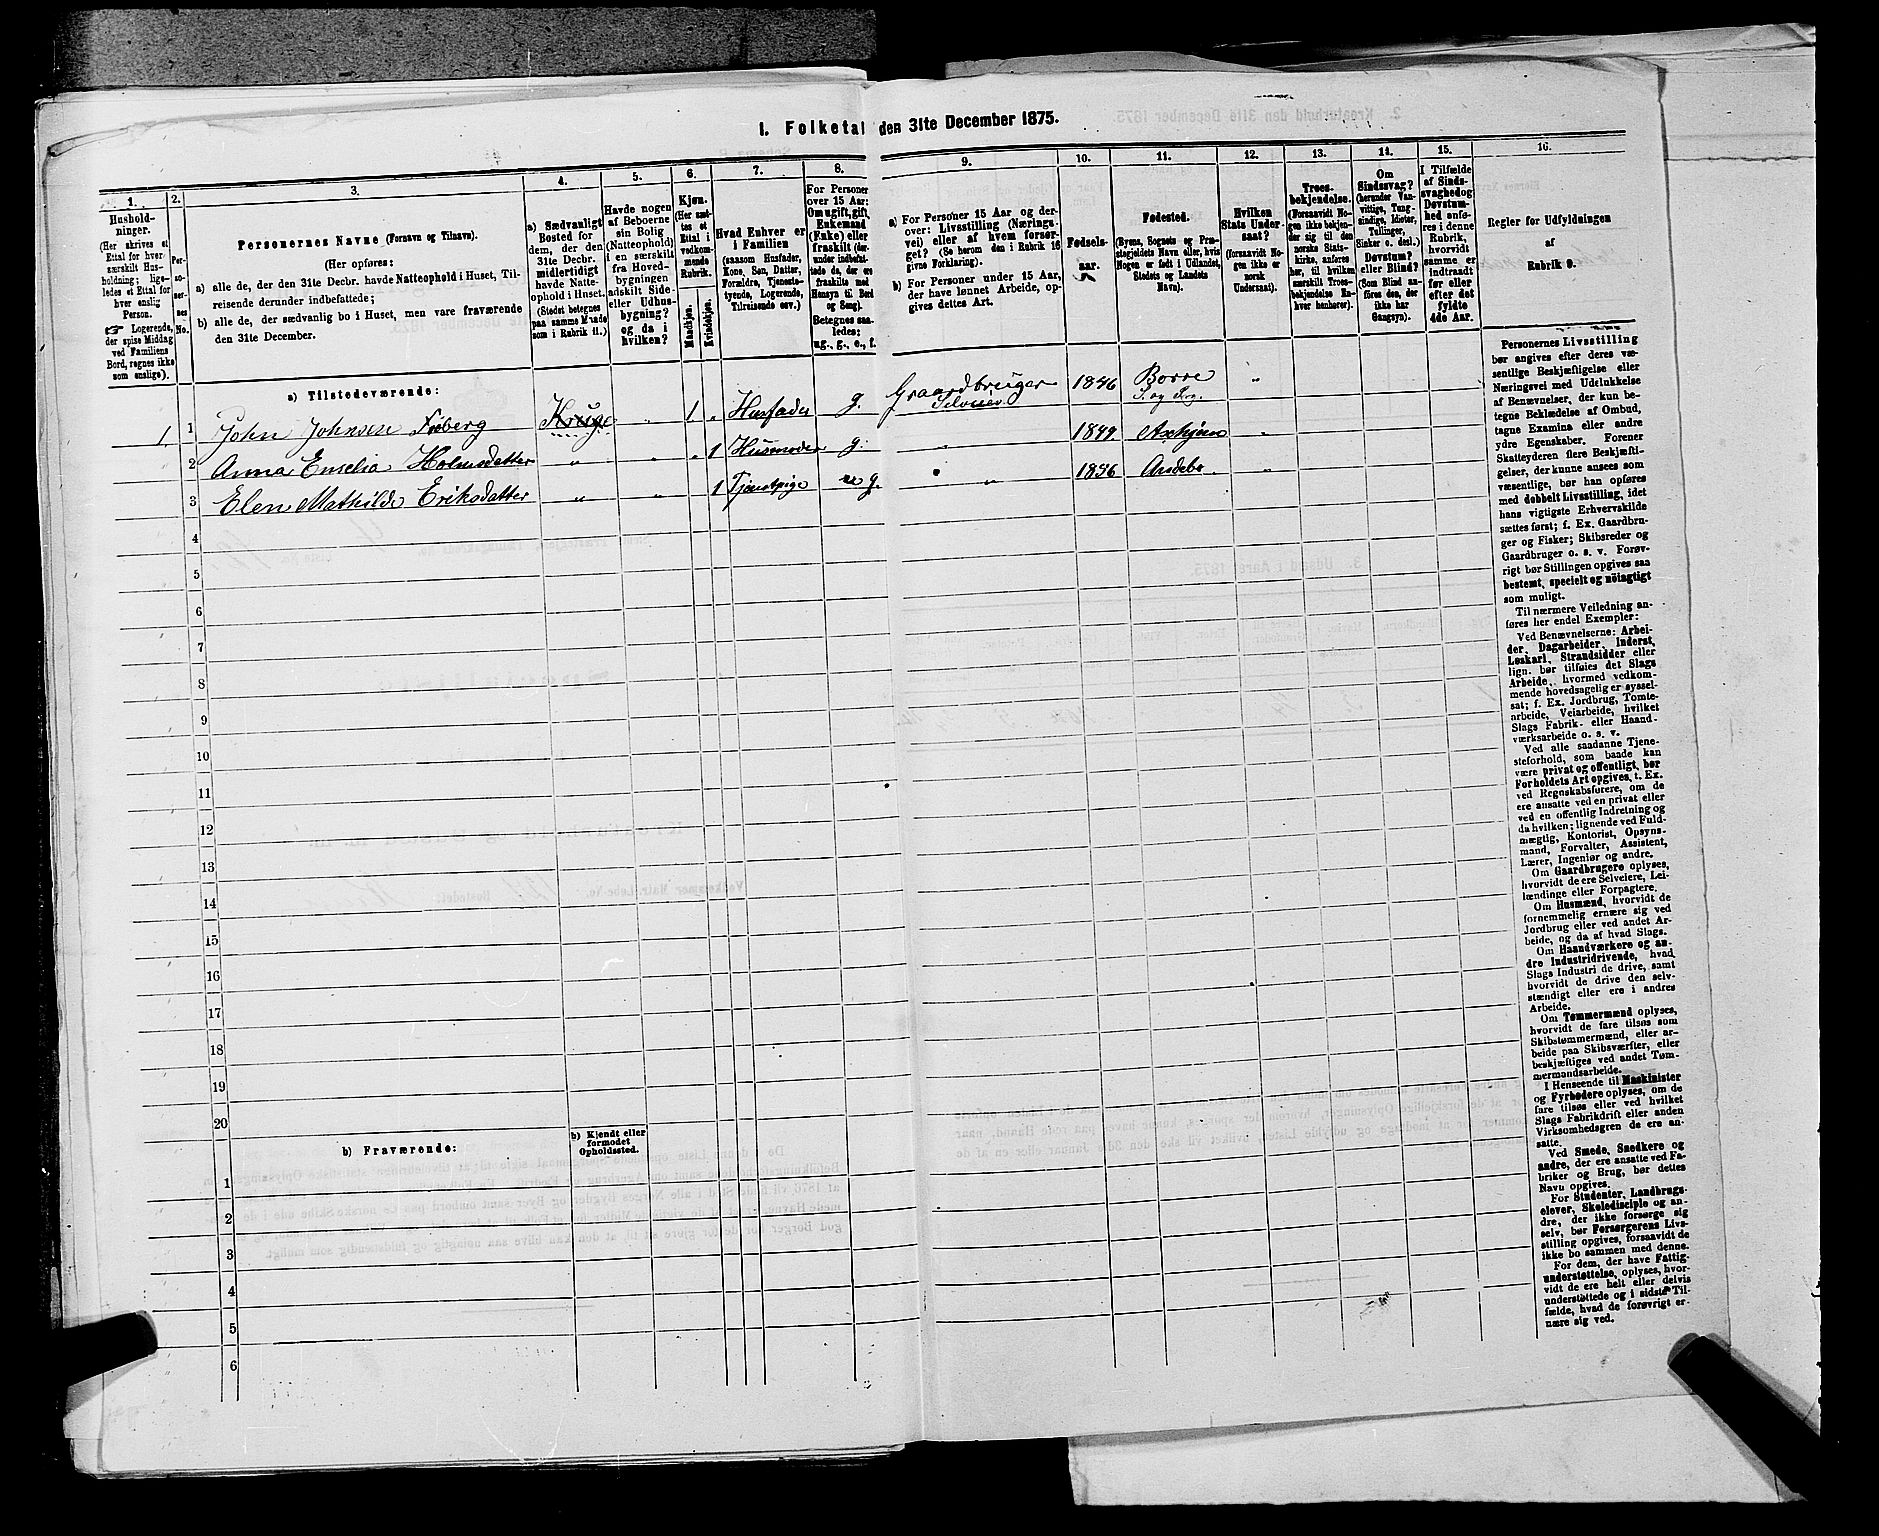 1. Folketal den 31te December 1875.
1.
2.
3.
4.
5.
6.
7.
8.
9.
10.
11.
12.
13.
14.
15.
16.
Hushold-
ninger.
(Her skrives et
Ettal for hver
særskilt Hus-
holdning; lige-
ledes et Ettal for
hver enslig
Person.
☞ Logerende,
der spise Middag
ved Familiens
Bord, regnes ikke
som enslige).
Per-
so-
ner-
nes
No.
Personernes Navne (Fornavn og Tilnavn).
(Her opføres:
a) alle de, der den 31te Decbr. havde Natteophold i Huset, Til-
reisende derunder indbefattede;
b) alle de, der sædvanlig bo i Huset, men vare fraværende
den 31te December.
a) Sædvanligt
Bosted for
dem, der den
31te Decbr.
midlertidigt
havde Natte-
ophold i Huset.
(Stedet betegnes
paa samme Maade
som i Rubrik 11.)
Havde nogen
af Beboerne
sin Bolig
(Natteophold)
i en særskilt
fra Hoved-
bygningen
adskilt Side-
eller Udhus-
bygning?
og da i
hvilken?
Kjøn.
(Her sæt-
tes et
Ettal i
vedkom-
mende
Rubrik.
Mandkjøn.
Kvindekjøn.
Hvad Enhver er
i Familien
(saasom Husfader,
Kone, Søn, Datter,
Forældre, Tjeneste-
tyende, Logerende,
Tilreisende osv.)
For Personer
over 15 Aar:
Om ugift, gift,
Enkemand
(Enke) eller
fraskilt (der-
under indbefat-
tede de, der ere
fraskilte med
Hensyn til Bord
og Seng).
Betegnes saa-
ledes:
ug., g., e., f.
a) For Personer 15 Aar og der-
over: Livsstilling (Nærings-
vei) eller af hvem forsør-
get? (Se herom den i Rubrik 16
givne Forklaring).
b) For Personer under 15 Aar,
der have lønnet Arbeide, op-
gives dettes Art.
Fødsels-
aar.
Fødested.
(Byens, Sognets og Præ-
stegjeldets Navn eller, hvis
Nogen er født i Udlandet,
Stedets og Landets
Navn).
Hvilken
Stats Under-
saat?
(forsaavidt No-
gen ikke er
norsk
Undersaat).
Troes-
bekjendelse.
(Forsaavidt No-
gen ikke bekjen-
der sig til den
norske Stats-
kirke, anføres
her, til hvilken
særskilt Troes-
bekjendelse En-
hver henhører).
Om
Sindssvag?
(herunder Van-
vittige, Tung-
sindige, Idioter,
Tullinger,
Sinker o. desl.)
Døvstum?
eller Blind?
(Som Blind an-
føres den, der
ikke har
Gangsyn).
I Tilfælde
af Sinds-
svaghed og
Døvstum-
hed anfø-
res i denne
Rubrik,
hvorvidt
samme er
indtraadt
før eller
efter det
fyldte
4de Aar.
Regler for Udfyldningen
af
Rubrik 9.
a) Tilstedeværende:
1 1 John Johnsen Kruge „ 1 „ Husfader g. Gaardbruger Selveier 1846 Borre S. og Prg. „
2 Anna Emelia Holmsdatter „ „ „ 1 Husmoder g. „ 1849 „
3 Elen Mathilde Eriksdatter „ „ 1 Tjenstpige g. „ 1856 Andebo „
4
5
6
7
8
9
10
11
12
13
14
15
16
17
18
19
20
b) Fraværende:
b) Kjendt eller
formodet
Opholdssted.
1
2
3
4
5
6
Personernes Livsstilling
bør angives efter deres væ-
sentlige Beskjæftigelse eller
Næringsvei med Udelukkelse
af Benævnelser, der kun be-
tegne Beklædelse af Ombud,
tagne Examina eller andre
ydre Egenskaber. Forener
Skatteyderen flere Beskjæfti-
gelser, der kunne ansees som
væsentlige, bør han opføres
med dobbelt Livsstilling, idet
hans vigtigste Erhvervskilde
sættes først; f. Ex. Gaardbru-
ger og Fisker; Skibsreder og
Gaardbruger o. s. v. Forøv-
rigt bør Stillingen opgives saa
bestemt, specielt og nøiagtigt
som muligt.
Til nærmere Veiledning an-
føres her endel Exempler:
Ved Benævnelserne: Arbei-
der, Dagarbeider, Inderst,
Løskarl, Strandsidder eller
lign. bør tilføies det Slags
Arbeide, hvormed vedkom-
mende hovedsagelig er syssel-
sat; f. Ex. Jordbrug, Tomte-
arbeide, Veiarbeide, hvilket
Slags Fabrik- eller Haand-
værksarbeide o. s. v.
Ved alle saadanne Tjene-
steforhold, som baade kan
være privat og offentligt, bør
Forholdets Art opgives, t. Ex.
ved Regnskabsførere, om de
ere ansatte ved en privat eller
ved en offentlig Indretning og
da hvilken; lignende ved Fuld-
mægtig, Kontorist, Opsyns-
mand, Forvalter, Assistent,
Lærer, Ingeniør og andre.
Om Gaardbrugere oplyses,
hvorvidt de ere Selveiere, Lei-
lændinge eller Forpagtere.
Om Husmænd, hvorvidt de
fornemmelig ernære sig ved
Jordbrug eller ved andet Ar-
beide, og da af hvad Slags.
Om Haandværkere og an-
dre Industridrivende, hvad
Slags Industri de drive, samt
hvorvidt de drive den selv-
stændigt eller ere i andres
Arbeide.
Om Tømmermænd oplyses,
hvorvidt de fare tilsøs som
Skibstømmermænd, eller ar-
beide paa Skibsværfter, eller
beskjæftiges ved andet Tøm-
mermandsarbeide.
I Henseende til Maskinister
og Fyrbødere oplyses, om de
fare tilsøs eller ved hvilket
Slags Fabrikdrift eller anden
Virksomhedsgren de ere an-
satte.
Ved Smede, Snedkere og
andre, der ere ansatte ved Fa-
briker og Brug, bør dettes
Navn opgives.
For Studenter, Landbrugs-
elever, Skoledisciple og an-
dre, der ikke forsørge sig
selv, bør Forsørgerens Livs-
stilling opgives, forsaavidt de
ikke bo sammen med denne.
For dem, der have Fattig-
understøttelse, oplyses, hvor-
vidt de ere helt eller delvis
understøttede og i sidste Til-
fælde, hvad de forøvrigt er-
nære sig ved.